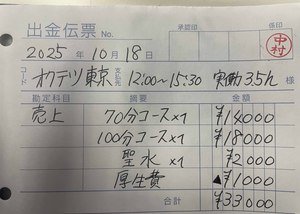 出金伝票 No. 承認印 係印
中村
2025年10月18日
コード 支払先 オクテツ東京 12:00〜15:30 実働3.5h 様
勘定科目 摘要 金額
売上 70分コース×1 ¥14000
100分コース×1 ¥18000
聖水 ×1 ¥2000
厚生費 ▲¥1000
合計 ¥33000